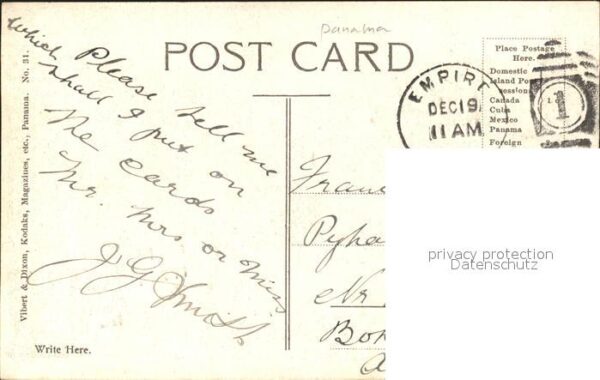 panama
POST CARD
Place Postage
Here.
Domestic
Island Pos
sessions
Canada
Cuba
Mexico
Panama
Foreign
EMPIRE
DEC 19
11 AM
1
Please tell me
which shall I put on
the cards
Mr. Mrs or Miss
J G Smith
Pyha
Nr
Vibert & Dixon, Kodaks, Magazines, etc., Panama. No. 31.
Write Here.
privacy protection
Datenschutz